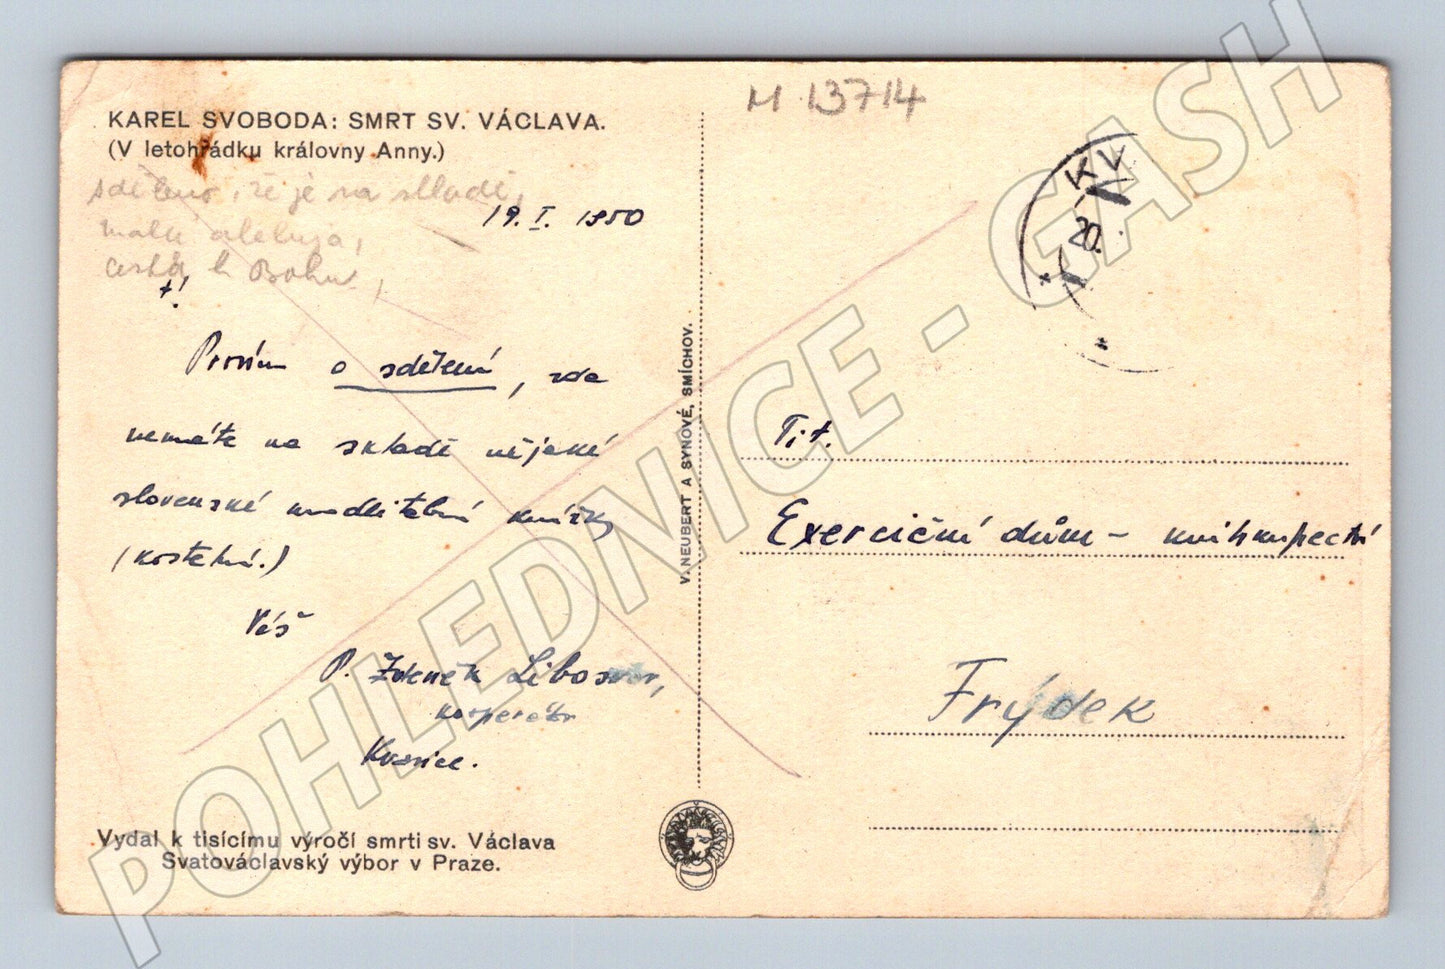 M 13714
KAREL SVOBODA: SMRT SV. VÁCLAVA.
(V letohrádku královny Anny.)
sděleno, že je na skladě,
malá aleluja,
cesta k Bohu,
19. I. 1950
+!
Prosím o sdělení, zda
nemáte na skladě nějaké
slovenské modlitební knížky
(kostelní.)
Váš
P. Zdeněk
kooperátor
Kvasice.
Vydal k tisícímu výročí smrti sv. Václava
Svatováclavský výbor v Praze.
V. NEUBERT A SYNOVÉ, SMÍCHOV.
KV
20.
Tit.
Exerciční dům – knihkupectví
Frýdek
POHLEDNICE - GASH